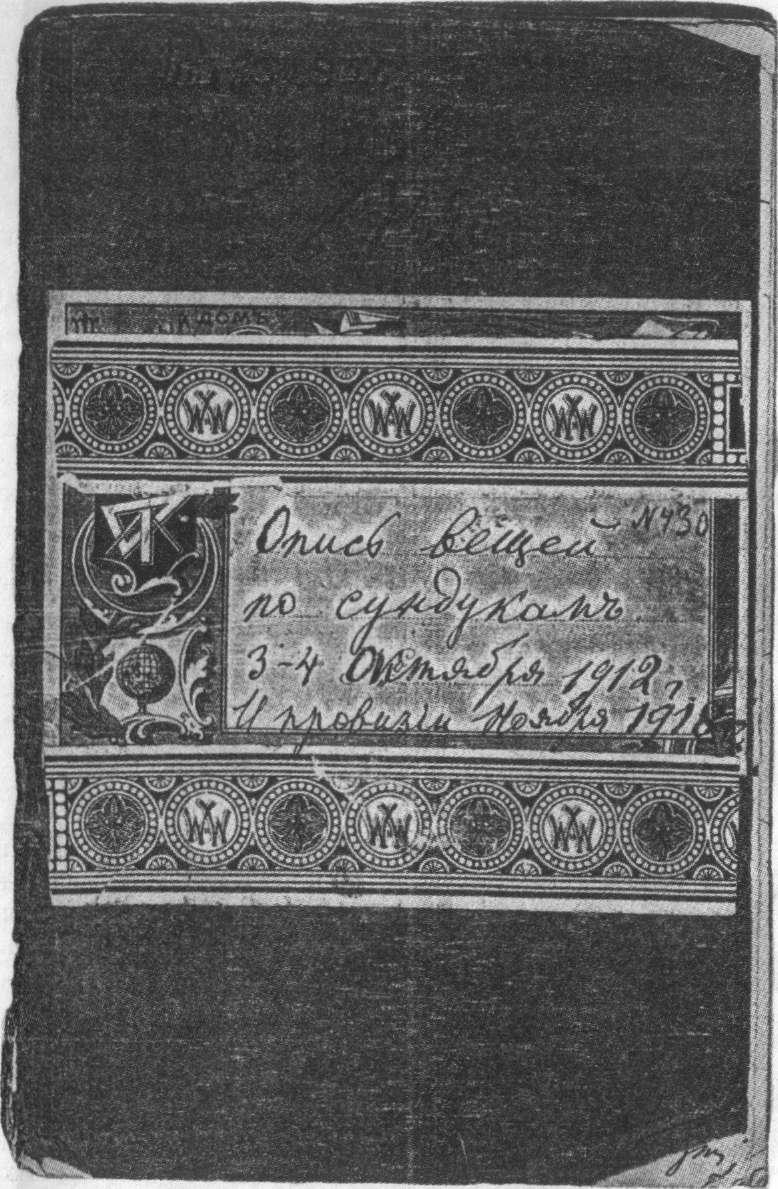 ДОМЪ
№ 430
Опись вещей
по сундукамъ
3-4 Октября 1912 г
И провизіи Ноября 1918